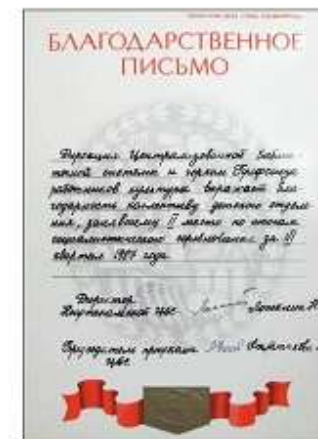 БЛАГОДАРСТВЕННОЕ
ПИСЬМО
Дирекция Централизованной библио-
течной системы и горком Профсоюза
работников культуры выражает бла-
годарность коллективу детского отделе-
ния, занявшему II место по итогам
социалистического соревнования за III
квартал 1987 года.
Директор
ЦБС
Председатель
ЦБС